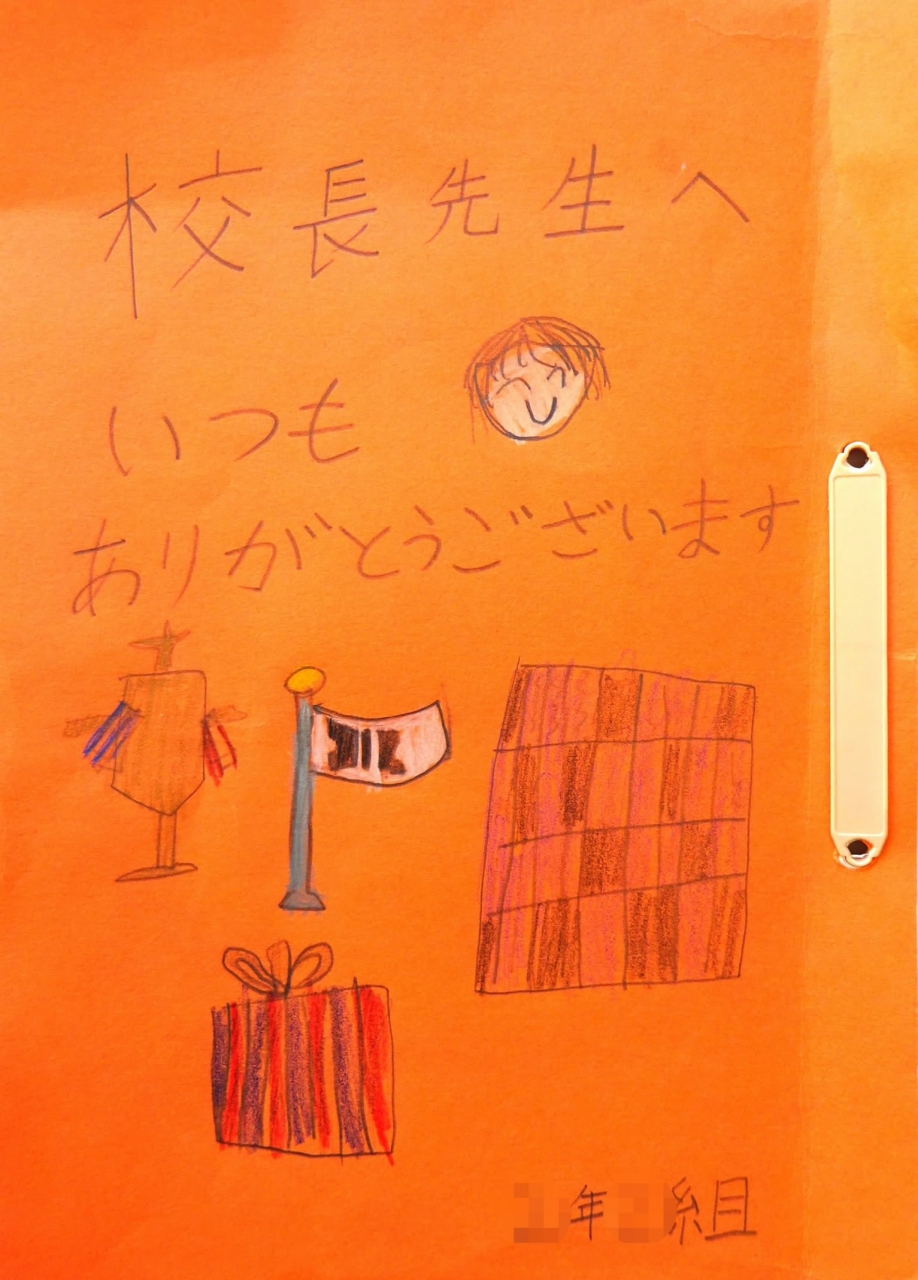 校長先生へ
いつも
ありがとうございます
年 組